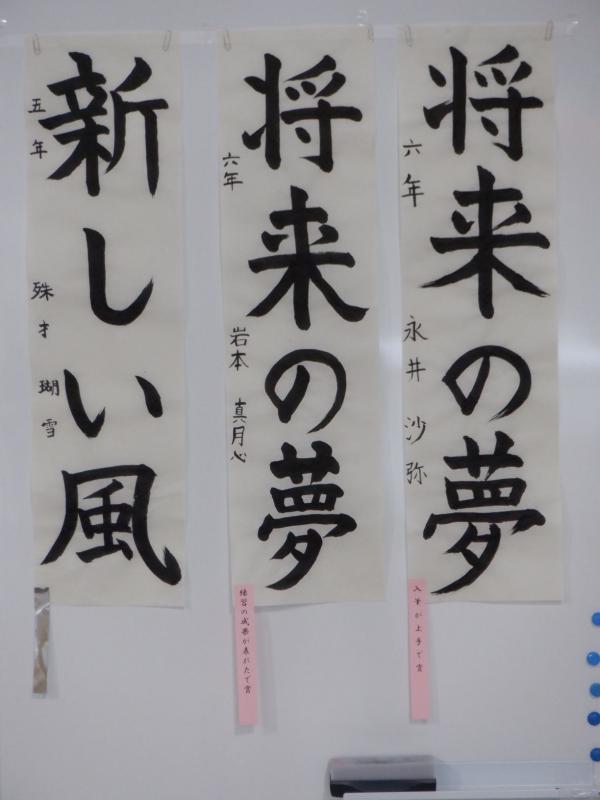 将来の夢
六年 永井 沙弥
入筆が上手で賞
将来の夢
六年 岩本 真月心
練習の成果が表れたで賞
新しい風
五年 殊才 瑚雪